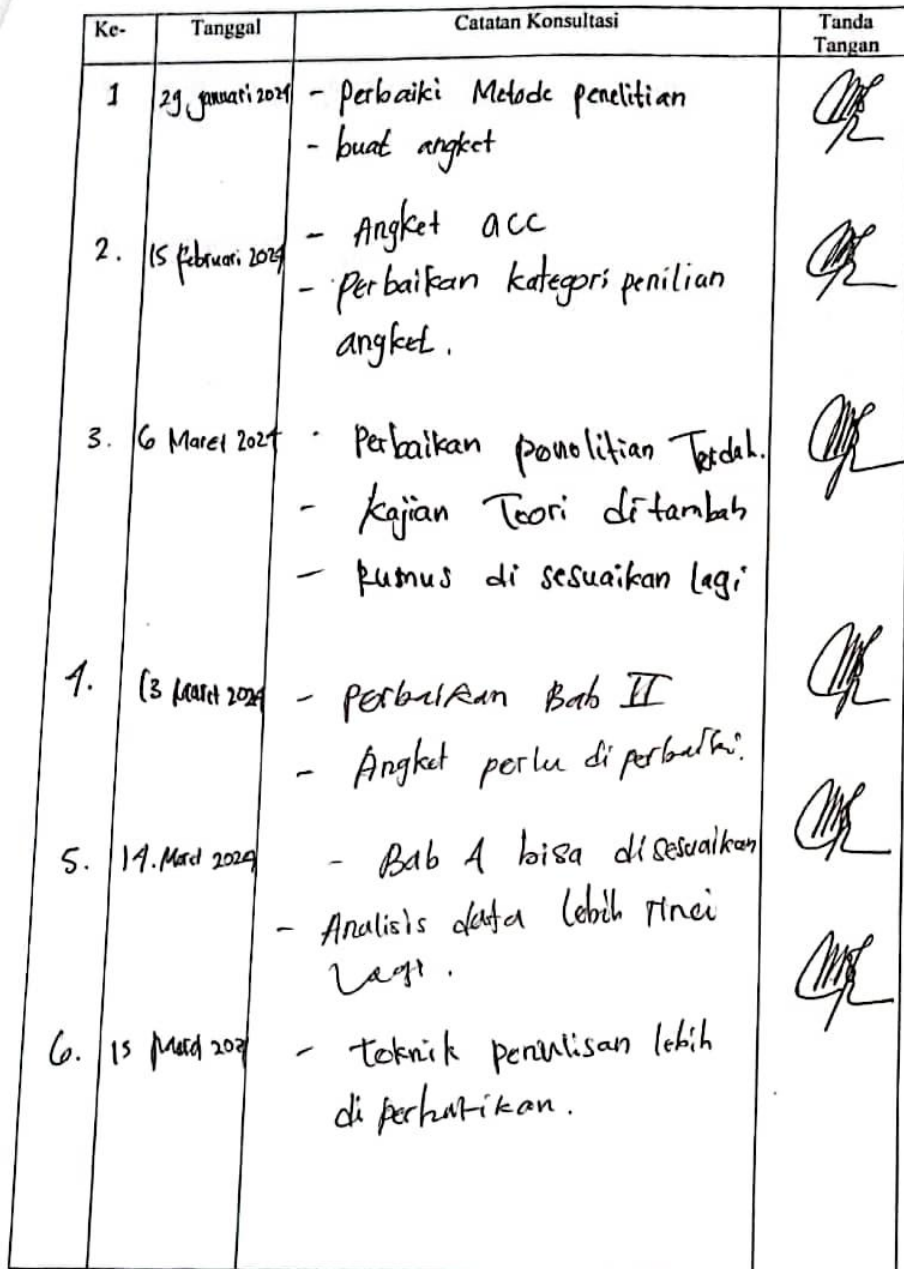 Ke- Tanggal Catatan Konsultasi Tanda
Tangan
1 29 januari 2024 - Perbaiki Metode penelitian
- buat angket
2. 15 februari 2024 - Angket acc
- Perbaikan kategori penilian
angket.
3. 6 Maret 2024 - Perbaikan penelitian Terdah.
- Kajian Teori di tambah
- Rumus di sesuaikan lagi
4. 13 Maret 2024 - Perbaikan Bab II
- Angket perlu di perbaiki.
5. 14. Maret 2024 - Bab 4 bisa disesuaikan
- Analisis data lebih rinci
Lagi.
6. 15 Maret 2024 - teknik penulisan lebih
di perhatikan.